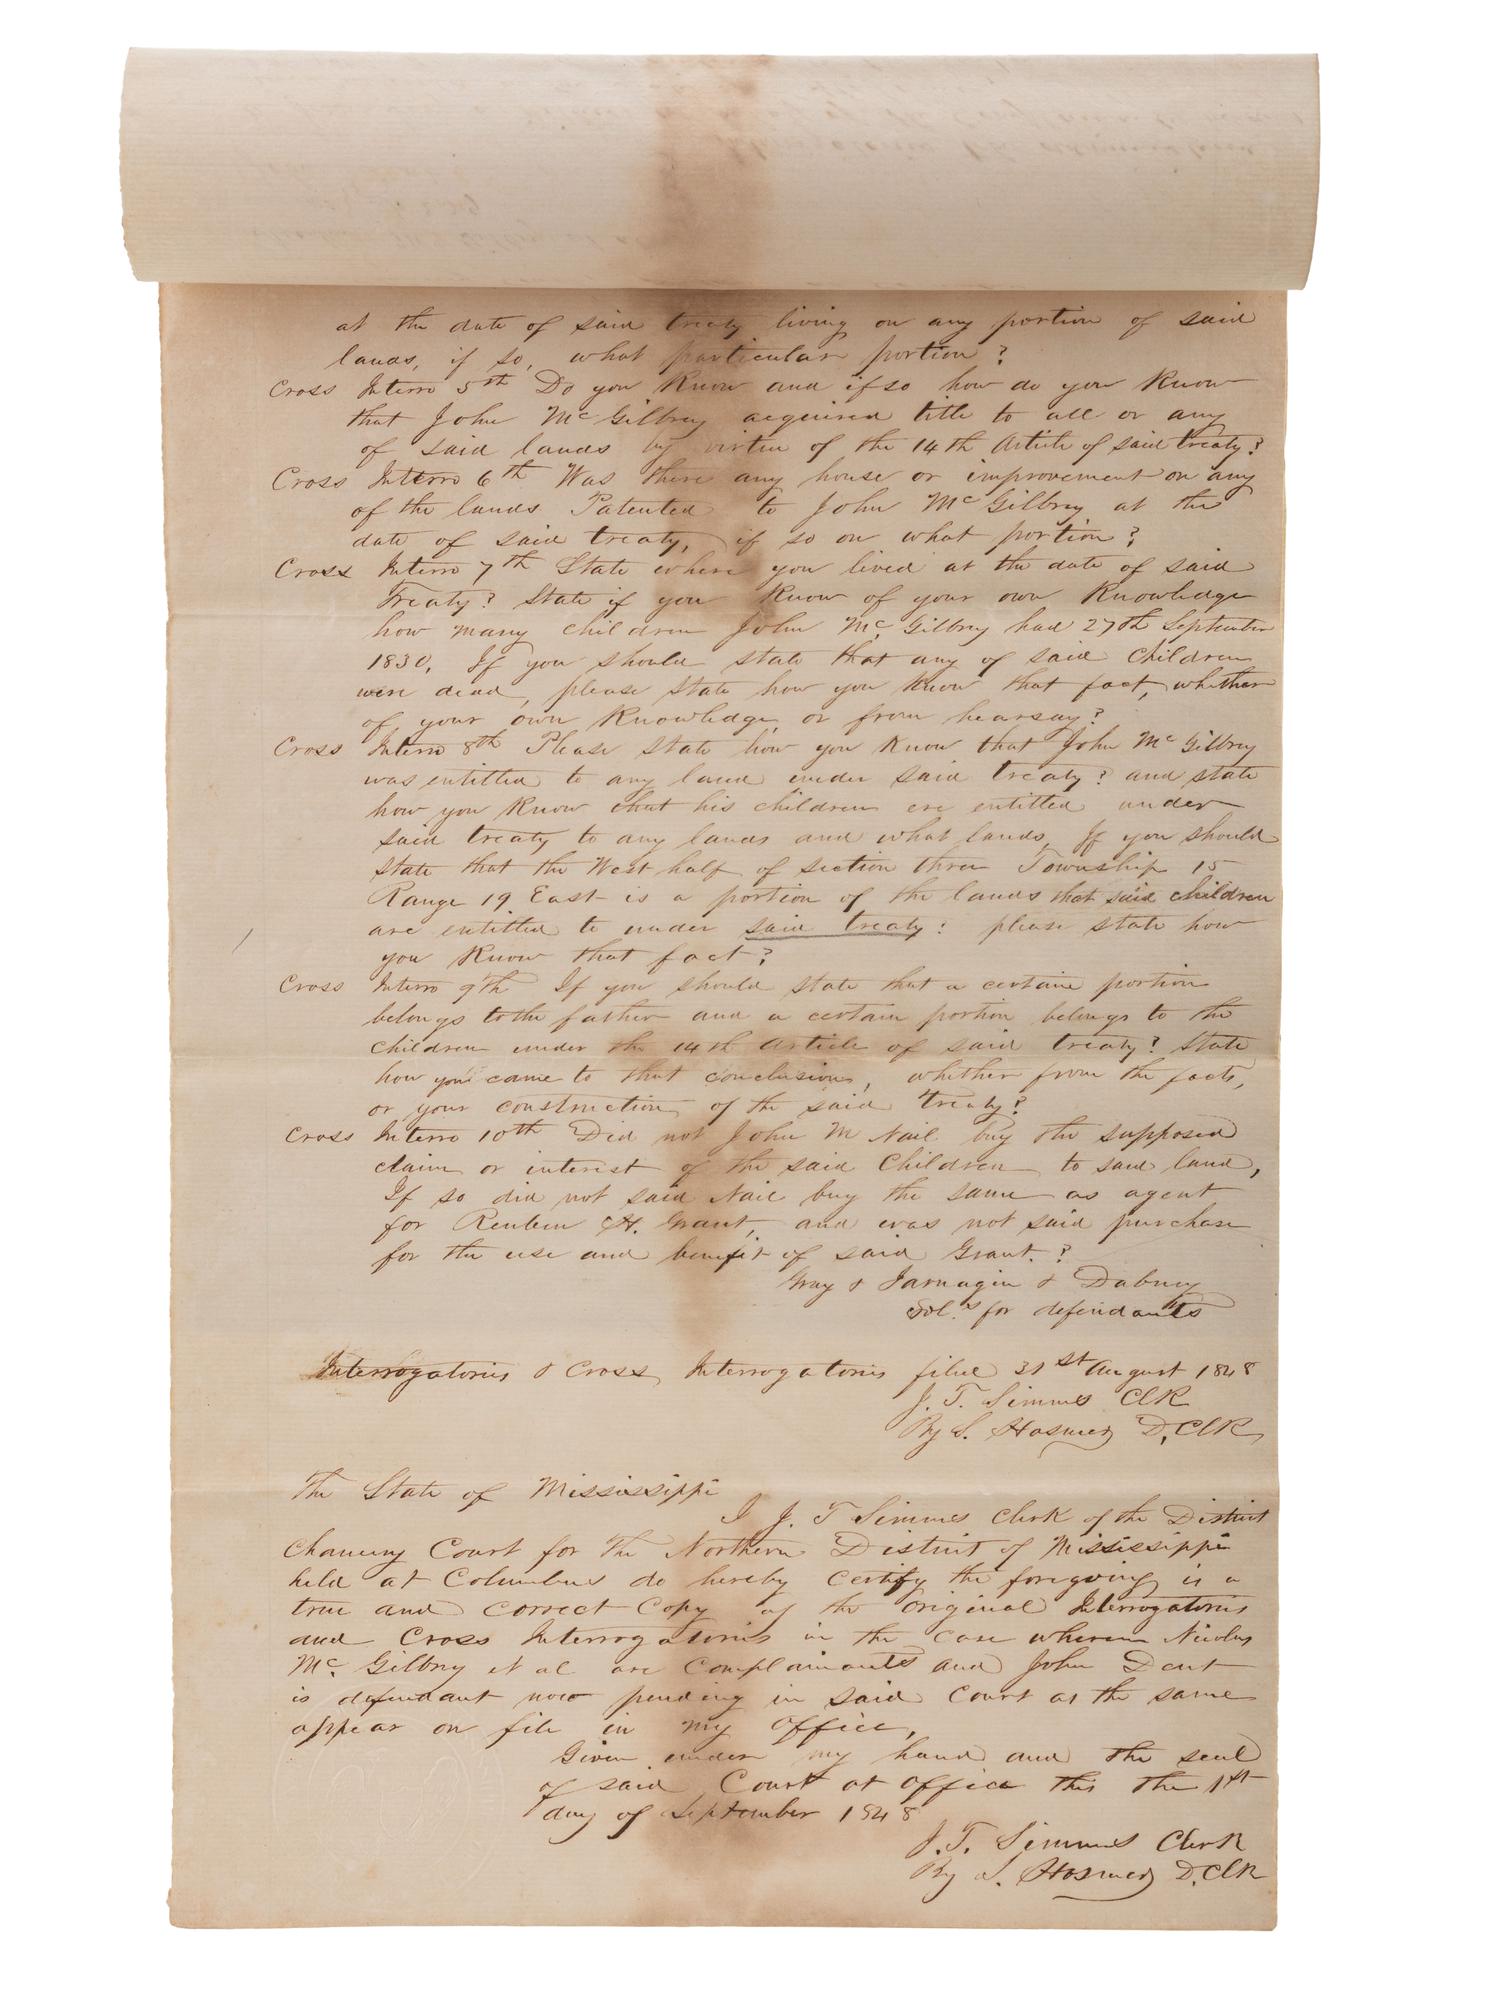 at the date of said treaty living on any portion of said
lands, if so, what particular portion?
Cross Interro 5th Do you Know and if so how do you Know
that John McGilbry acquired title to all or any
of said lands by virtue of the 14th Article of said treaty?
Cross Interro 6th Was there any house or improvement on any
of the lands Patented to John McGilbry at the
date of said treaty, if so on what portion?
Cross Interro 7th State where you lived at the date of said
Treaty? State if you Know of your own Knowledge
how many children John Mc.Gilbry had 27th September
1830. If you should state that any of said Children
were dead, please state how you Know that fact, whether
of your own Knowledge or from hearsay?
Cross Interro 8th Please state how you Know that John McGilbry
was entitled to any land under said treaty? and state
how you Know that his children are entitled under
said treaty to any lands and what lands, If you should
state that the West half of section three Township 15
Range 19 East is a portion of the lands that said children
are entitled to under said treaty: please state how
you Know that fact?
Cross Interro 9th If you should state that a certain portion
belongs to the father and a certain portion belongs to the
children under the 14th Article of said treaty? State
how you came to that conclusion, whether from the facts,
or your construction of the said treaty?
Cross Interro 10th Did not John M Nail buy the supposed
claim or interest of the said Children to said land,
If so did not said Nail buy the same as agent
for Reuben H. Grant, and was not said purchase
for the use and benefit of said Grant.?
Gray & Jarnagin & Dabney
Sol.s for defendants
Interrogatories & Cross Interrogatories filed 31st August 1848
J. T. Simms ClK
By S. Hosmer D. ClK
The State of Mississippi
I J. T Simms Clerk of the District
Chancery Court for the Northern District of Mississippi
held at Columbus do hereby certify the foregoing is a
true and correct Copy of the original Interrogatories
and Cross Interrogatories in the case wherein Nicolas
Mc. Gilbry et al are Complainants and John Dent
is defendant now pending in said Court as the same
appear on file in my office,
Given under my hand and the seal
of said Court at office this the 1st
day of September 1848
J. T. Simms Clerk
By S. Hosmer D. ClK